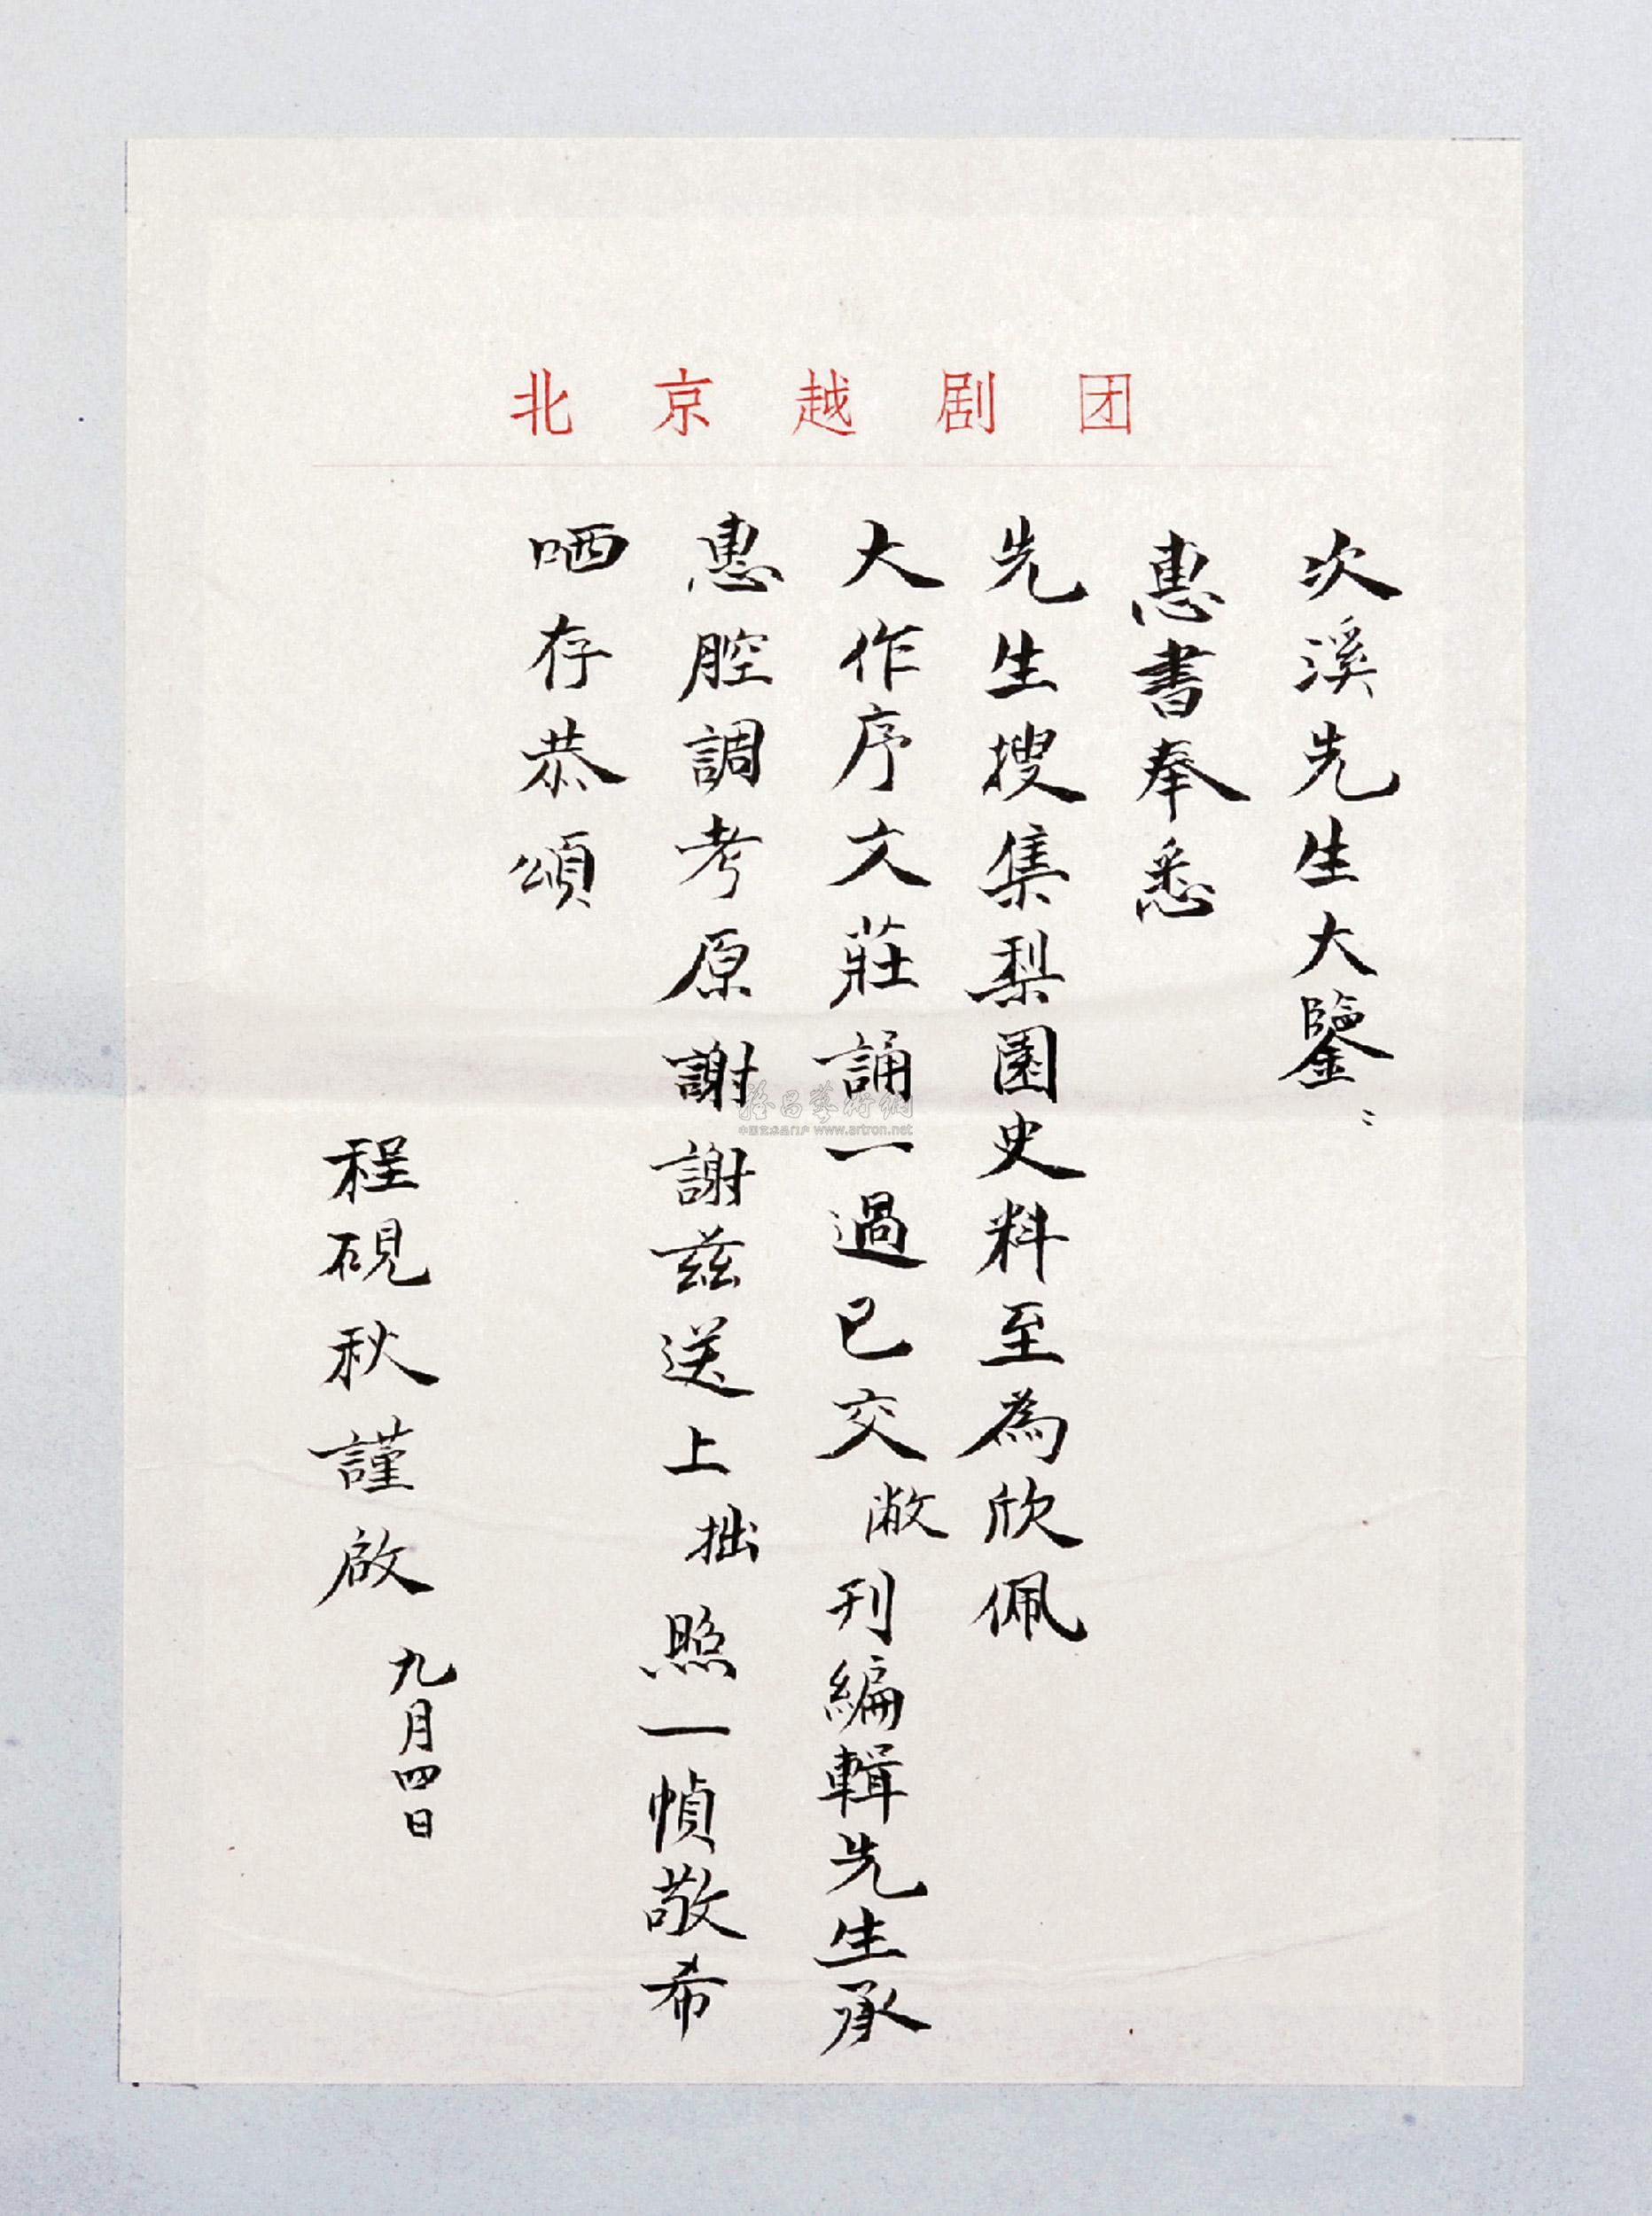 北京越剧团
次溪先生大鑒：
惠書奉悉
先生搜集梨園史料至為欣佩
大作序文莊誦一過已交敝刊編輯先生承
惠腔調考原謝謝茲送上拙照一幀敬希
哂存恭頌
程硯秋謹啟
九月四日
雅昌藝術網
中国艺术品门户 www.artron.net